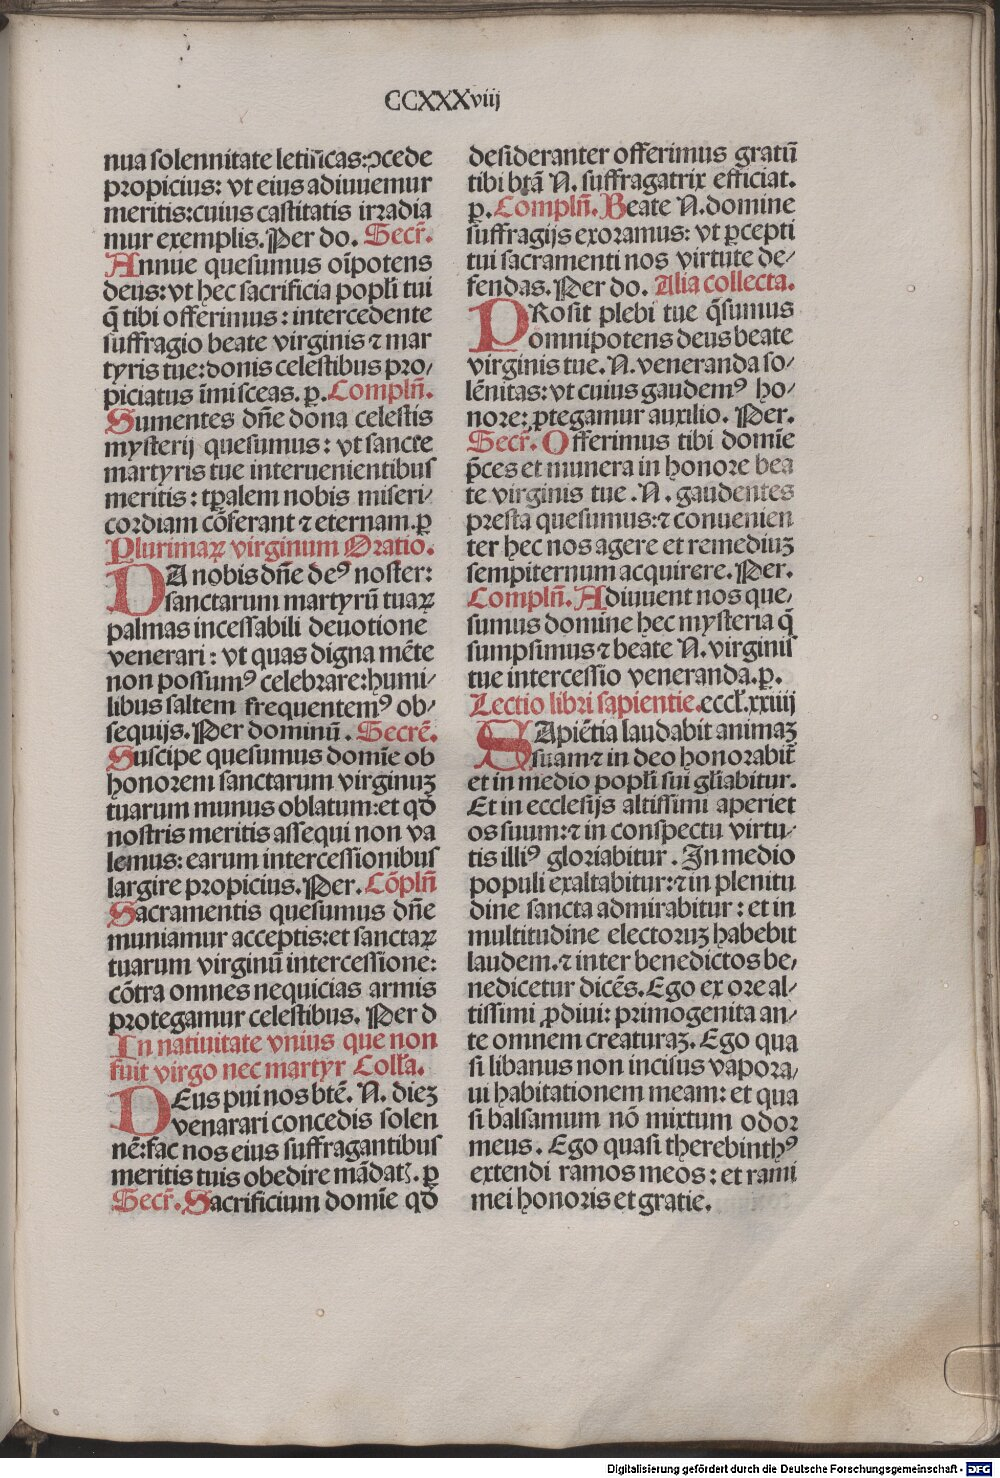 CCXXXviij
nua solennitate letificas:ↄcede
propicius: vt eius adiuuemur
meritis:cuius castitatis irradia
mur exemplis. Per do. Secr̃.
Annue quesumus oĩpotens
deus: vt hec sacrificia popłi tui
q̃ tibi offerimus: intercedente
suffragio beate virginis ⁊ mar
tyris tue: donis celestibus pro/
piciatus ĩmisceas. p. Complñ.
Sumentes dñe dona celestis
mysterij quesumus: vt sancte
martyris tue interuenientibus
meritis: tp̃alem nobis miseri/
cordiam cõferant ⁊ eternam. p
Plurimaꝝ virginum Oratio.
DA nobis dñe deꝰ noster:
sanctarum martyrũ tuaꝝ
palmas incessabili deuotione
venerari: vt quas digna mẽte
non possumꝰ celebrare: humi/
libus saltem frequentemꝰ ob/
sequijs. Per dominũ. Secrẽ.
Suscipe quesumus domĩe ob
honorem sanctarum virginuꝫ
tuarum munus oblatum: et qď
nostris meritis assequi non va
lemus: earum intercessionibus
largire propicius. Per. Cõplñ
Sacramentis quesumus dñe
muniamur acceptis: et sanctaꝝ
tuarum virginũ intercessione:
cõtra omnes nequicias armis
protegamur celestibus. Per d
In natiuitate vnius que non
fuit virgo nec martyr Colła.
DEus pui nos btẽ. N. dieꝫ
venarari concedis solen
nẽ: fac nos eius suffragantibus
meritis tuis obedire mãdatꝭ. p
Secr̃. Sacrificium domĩe qď
desideranter offerimus gratũ
tibi btã N. suffragatrix efficiat.
p. Complñ. Beate N. domine
suffragijs exoramus: vt ꝑcepti
tui sacramenti nos virtute de/
fendas. Per do. Alia collecta.
PRosit plebi tue q̃sumus
omnipotens deus beate
virginis tue. N. veneranda so/
lẽnitas: vt cuius gaudemꝰ ho/
nore: ꝓtegamur auxilio. Per.
Secr̃. Offerimus tibi domĩe
p̃ces et munera in honore bea
te virginis tue. N. gaudentes
presta quesumus: ⁊ conuenien
ter hec nos agere et remediuꝫ
sempiternum acquirere. Per.
Complñ. Adiuuent nos que/
sumus domĩne hec mysteria q̃
sumpsimus ⁊ beate N. virginis
tue intercessio veneranda. p.
Lectio libri sapientie. eccł. xxiiij
SApiẽtia laudabit animaꝫ
suam ⁊ in deo honorabit̃
et in medio popłi sui głiabitur.
Et in ecclesijs altissimi aperiet
os suum: ⁊ in conspectu virtu/
tis illiꝰ gloriabitur. In medio
populi exaltabitur: ⁊ in plenitu
dine sancta admirabitur: et in
multitudine electoruꝫ habebit
laudem. ⁊ inter benedictos be/
nedicetur dicẽs. Ego ex ore al/
tissimi ꝓdiui: primogenita an/
te omnem creaturaꝫ. Ego qua
si libanus non incisus vapora/
ui habitationem meam: et qua
si balsamum nõ mixtum odor
meus. Ego quasi therebinthꝰ
extendi ramos meos: et rami
mei honoris et gratie.
Digitalisierung gefördert durch die Deutsche Forschungsgemeinschaft - DFG